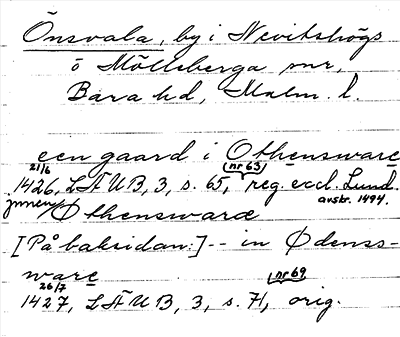 Önsvala, by i Nevitshögs
o Mölleberga snr,
Bara hd, Malm. l.
een gaard i Othensware
21/6 (nr 63)
1426, LÄUB, 3, s. 65, reg. eccl. Lund.
avskr. 1494.
Othensware
[På baksidan:] -- in Ødenss-
ware
26/7 (nr 69
1427, LÄUB, 3, s. 71, orig.